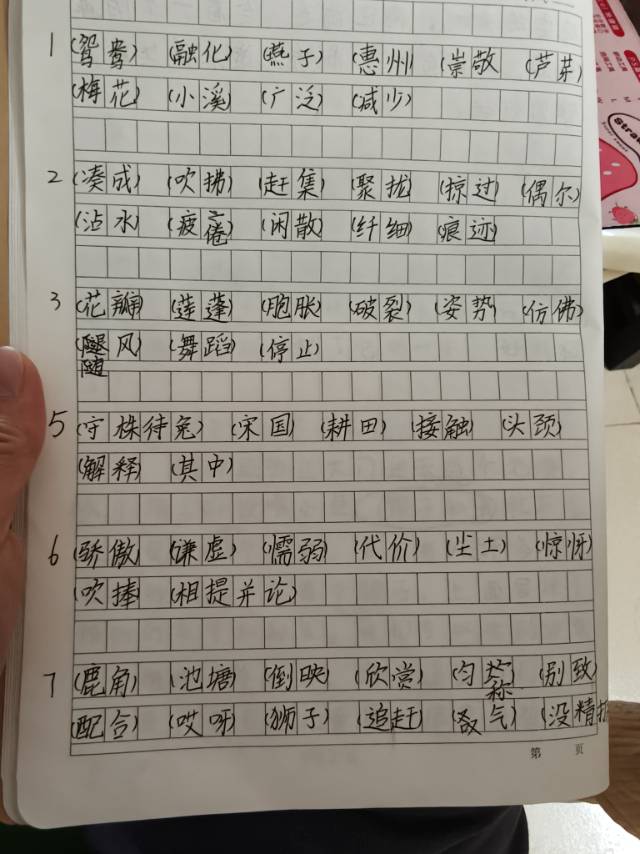 1 (鸳鸯) (融化) (燕子) (惠州) (崇敬) (芦芽)
(梅花) (小溪) (广泛) (减少)
2 (凑成) (吹拂) (赶集) (聚拢) (掠过) (偶尔)
(沾水) (疲倦) (闲散) (纤细) (痕迹)
3 (花瓣) (莲蓬) (胞胀) (破裂) (姿势) (仿佛)
(随风) (舞蹈) (停止)
5 (守株待兔) (宋国) (耕田) (接触) (头颈)
(解释) (其中)
6 (骄傲) (谦虚) (懦弱) (代价) (尘土) (惊讶)
(吹捧) (相提并论)
7 (鹿角) (池塘) (倒映) (欣赏) (匀称) (别致)
(配合) (哎呀) (狮子) (追赶) 气) (没精
第 页